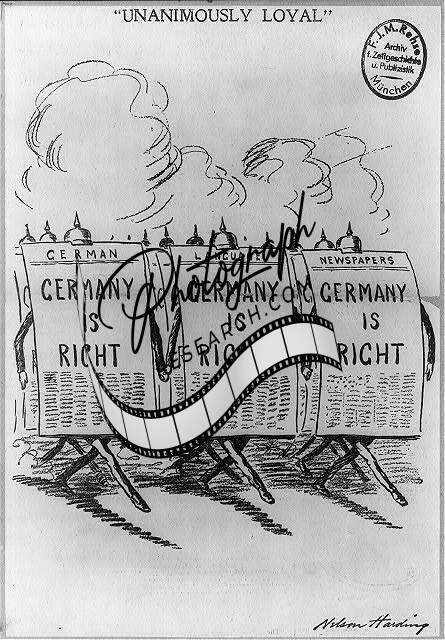 "UNANIMOUSLY LOYAL"
F.J.M. Rehse
Archiv
f. Zeitgeschichte
u. Publizistik
München
GERMAN
LANGUAGE
NEWSPAPERS
GERMANY
IS
RIGHT
GERMANY
IS
RIGHT
GERMANY
IS
RIGHT
Photograph
RESEARCH.COM
Nelson Harding